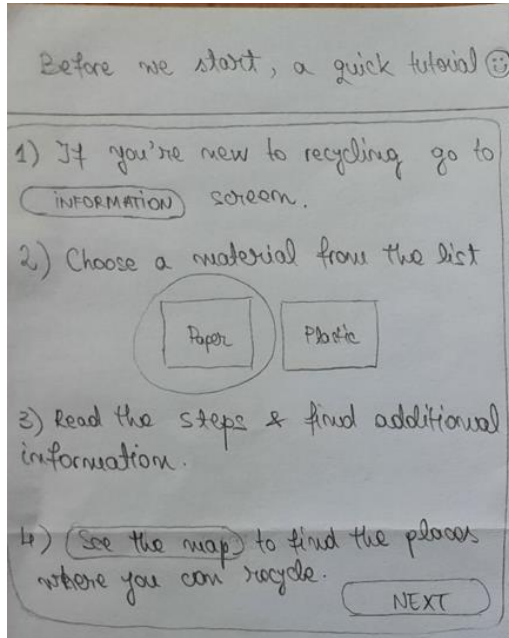 Before we start, a quick tutorial
1) If you're new to recycling go to
INFORMATION screen.
2) Choose a material from the list
Paper Plastic
3) Read the steps & find additional
information.
4) See the map to find the places
where you can recycle.
NEXT